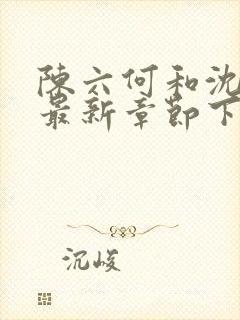 陳六何和沈
最新章節下
沉峻